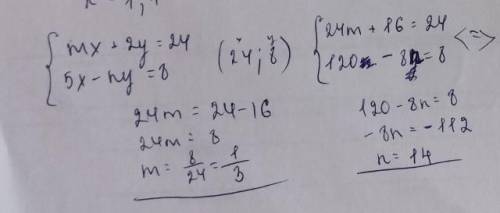 { mx + 2y = 24
{ 5x - ny = 8
(24; 8)
x y
{ 24m + 16 = 24
{ 120 - 8n = 8 <=>
24m = 24 - 16
24m = 8
m = 8/24 = 1/3
120 - 8n = 8
-8n = -112
n = 14